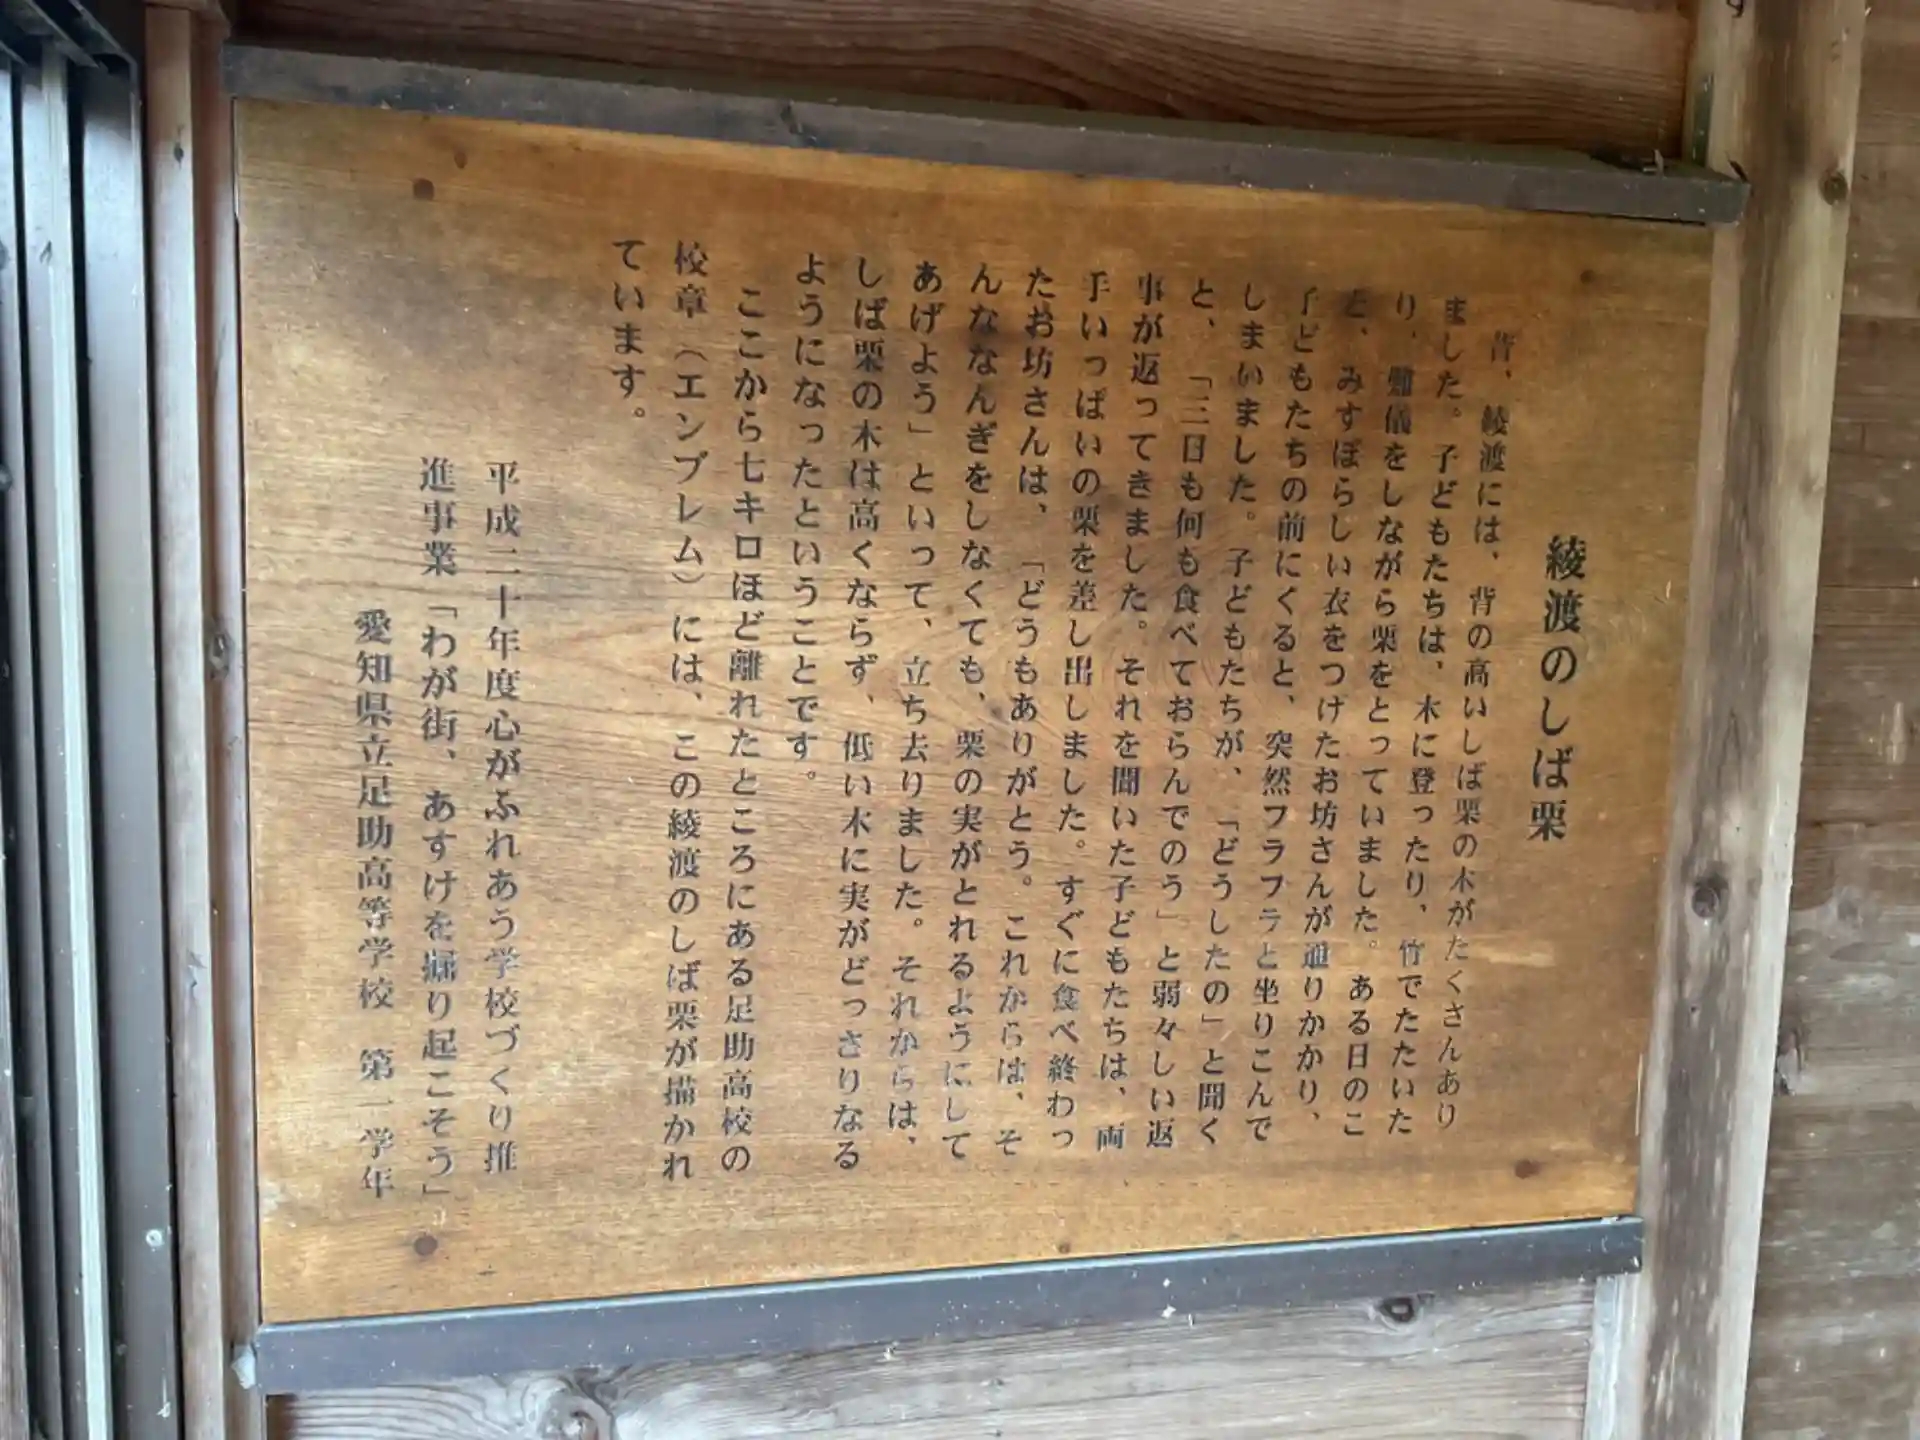 綾渡のしば栗
昔、綾渡には、背の高いしば栗の木がたくさんあり
ました。子どもたちは、木に登ったり、竹でたたいた
り、難儀をしながら栗をとっていました。ある日のこ
と、みすぼらしい衣をつけたお坊さんが通りかかり、
子どもたちの前にくると、突然フラフラと坐りこんで
しまいました。子どもたちが、「どうしたの」と聞く
と、「三日も何も食べておらんでのう」と弱々しい返
事が返ってきました。それを聞いた子どもたちは、両
手いっぱいの栗を差し出しました。すぐに食べ終わっ
たお坊さんは、「どうもありがとう。これからは、そ
んななんぎをしなくても、栗の実がとれるようにして
あげよう」といって、立ち去りました。それからは、
しば栗の木は高くならず、低い木に実がどっさりなる
ようになったということです。
ここから七キロほど離れたところにある足助高校の
校章（エンブレム）には、この綾渡のしば栗が描かれ
ています。
平成二十年度心がふれあう学校づくり推
進事業「わが街、あすけを掘り起こそう」
愛知県立足助高等学校　第一学年